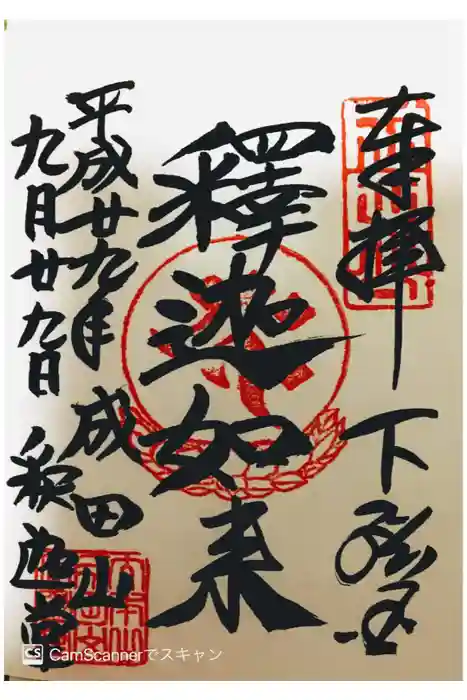 奉拝 下総国
釋迦如来
平成廿九年 成田山
九月廿九日 釈迦堂
CS CamScannerでスキャン